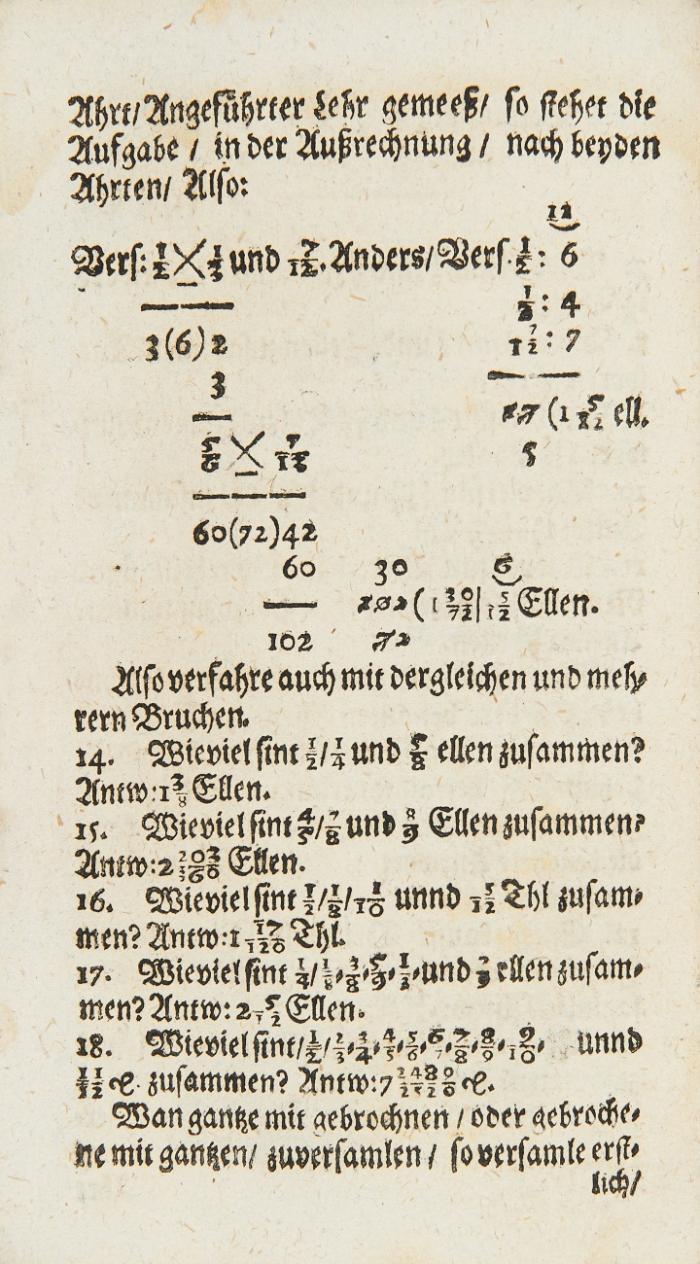 Ahrt/ Angeführter Lehr gemeeß/ so stehet die
Aufgabe / in der Außrechnung / nach beyden
Ahrten/ Also:
12
Vers: 1/2 ╳ 1/3 und 7/12. Anders/ Vers. 1/2 : 6
1/3 : 4
7/12 : 7
3(6)2
3
17 (1 5/12 ell.
5
5/6 ╳ 7/12
60(72)42
60 30 6
102 (1 30/72 | 5/12 Ellen.
102 72
Also verfahre auch mit dergleichen und meh-
rern Bruchen.
14. Wieviel sint 1/2/ 1/4 und 5/8 ellen zusammen?
Antw: 1 3/8 Ellen.
15. Wieviel sint 4/5/ 7/8 und 8/9 Ellen zusammen?
Antw: 2 203/360 Ellen.
16. Wieviel sint 1/2/ 1/8/ 1/10 unnd 5/12 Thl zusam-
men? Antw: 1 17/120 Thl.
17. Wieviel sint 1/4/ 3/8, 5/9, und ellen zusam-
men? Antw: 2 Ellen.
18. Wieviel sint/ 1/2/ 2/3, 3/4, 4/5, 5/6, 6/7, 7/8, 8/9, 9/10, unnd
11/12 zusammen? Antw: 7
Wan gantze mit gebrochnen / oder gebroche-
ne mit gantzen/ zuversamlen / so versamle erst-
lich/